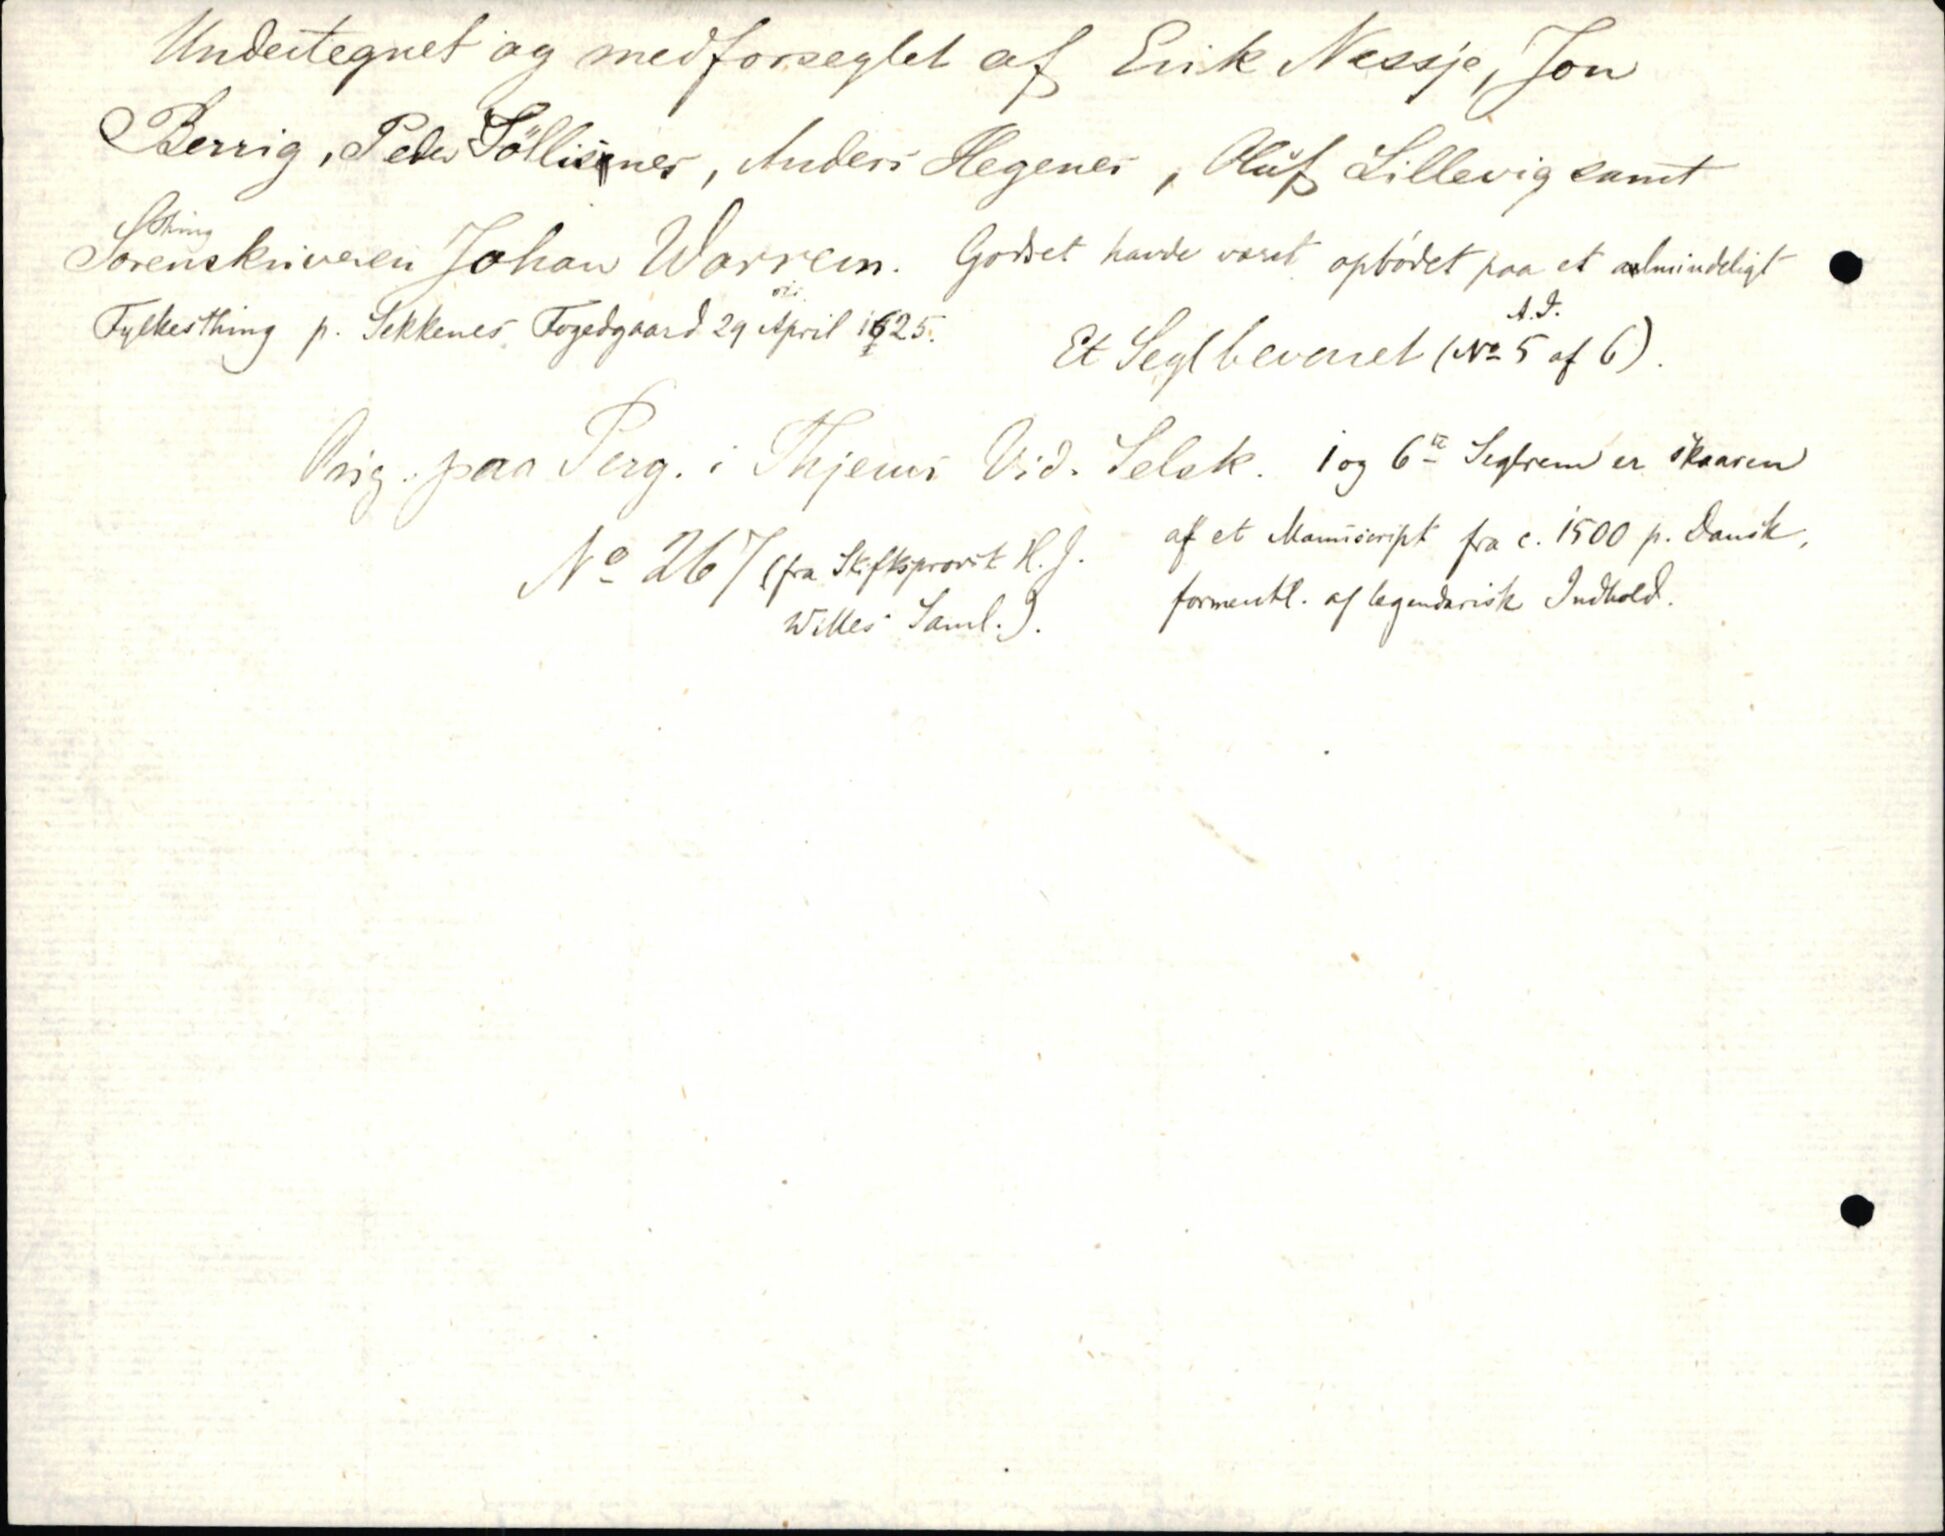 Undertegnet og medforseglet af Erik Nessje, Jon
Berrig, Peder Söllisnes, Anders Hegenes, Oluf Lillevig samt
Thing
Sorenskriveren Johan Warrem. Godset havde været opbødet paa et almindeligt
Fylkesthing p. Sekkenes Fogedgaard 29 April 1625.
A. I.
Et Segl bevaret (No 5 af 6).
Orig. paa Perg. i Thjems Vid. Selsk.
No 267 (fra Stiftsprovst H. J.
Willes Saml.).
1 og 6te Seglrem er skaaren
af et Manuscript fra c. 1500 p. Dansk,
formentl. af legendarisk Indhold.